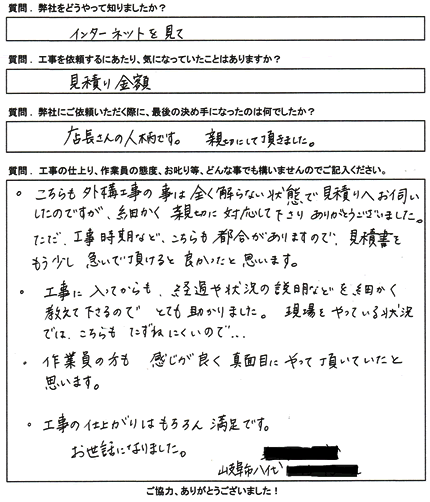 質問．弊社をどうやって知りましたか？
インターネットを見て
質問．工事を依頼するにあたり、気になっていたことはありますか？
見積り金額
質問．弊社にご依頼いただく際に、最後の決め手になったのは何でしたか？
店長さんの人柄です。 親切にして頂きました。
質問．工事の仕上り、作業員の態度、お叱り等、どんな事でも構いませんのでご記入ください。
。 こちらも外構工事の事は全く解らない状態で見積りへお伺い
したのですが、細かく親切に対応して下さりありがとうございました。
ただ、工事時期など、こちらも都合がありますので、見積書を
もう少し急いで頂けると良かったと思います。
。 工事に入ってからも、経過や状況の説明などを細かく
教えて下さるのでとても助かりました。 現場をやっている状況
では、こちらもたずねにくいので…
。 作業員の方も 感じが良く真面目にやって頂いていたと
思います。
。 工事の仕上がりはもちろん満足です。
お世話になりました。
岐阜市八代
ご協力、ありがとうございました！